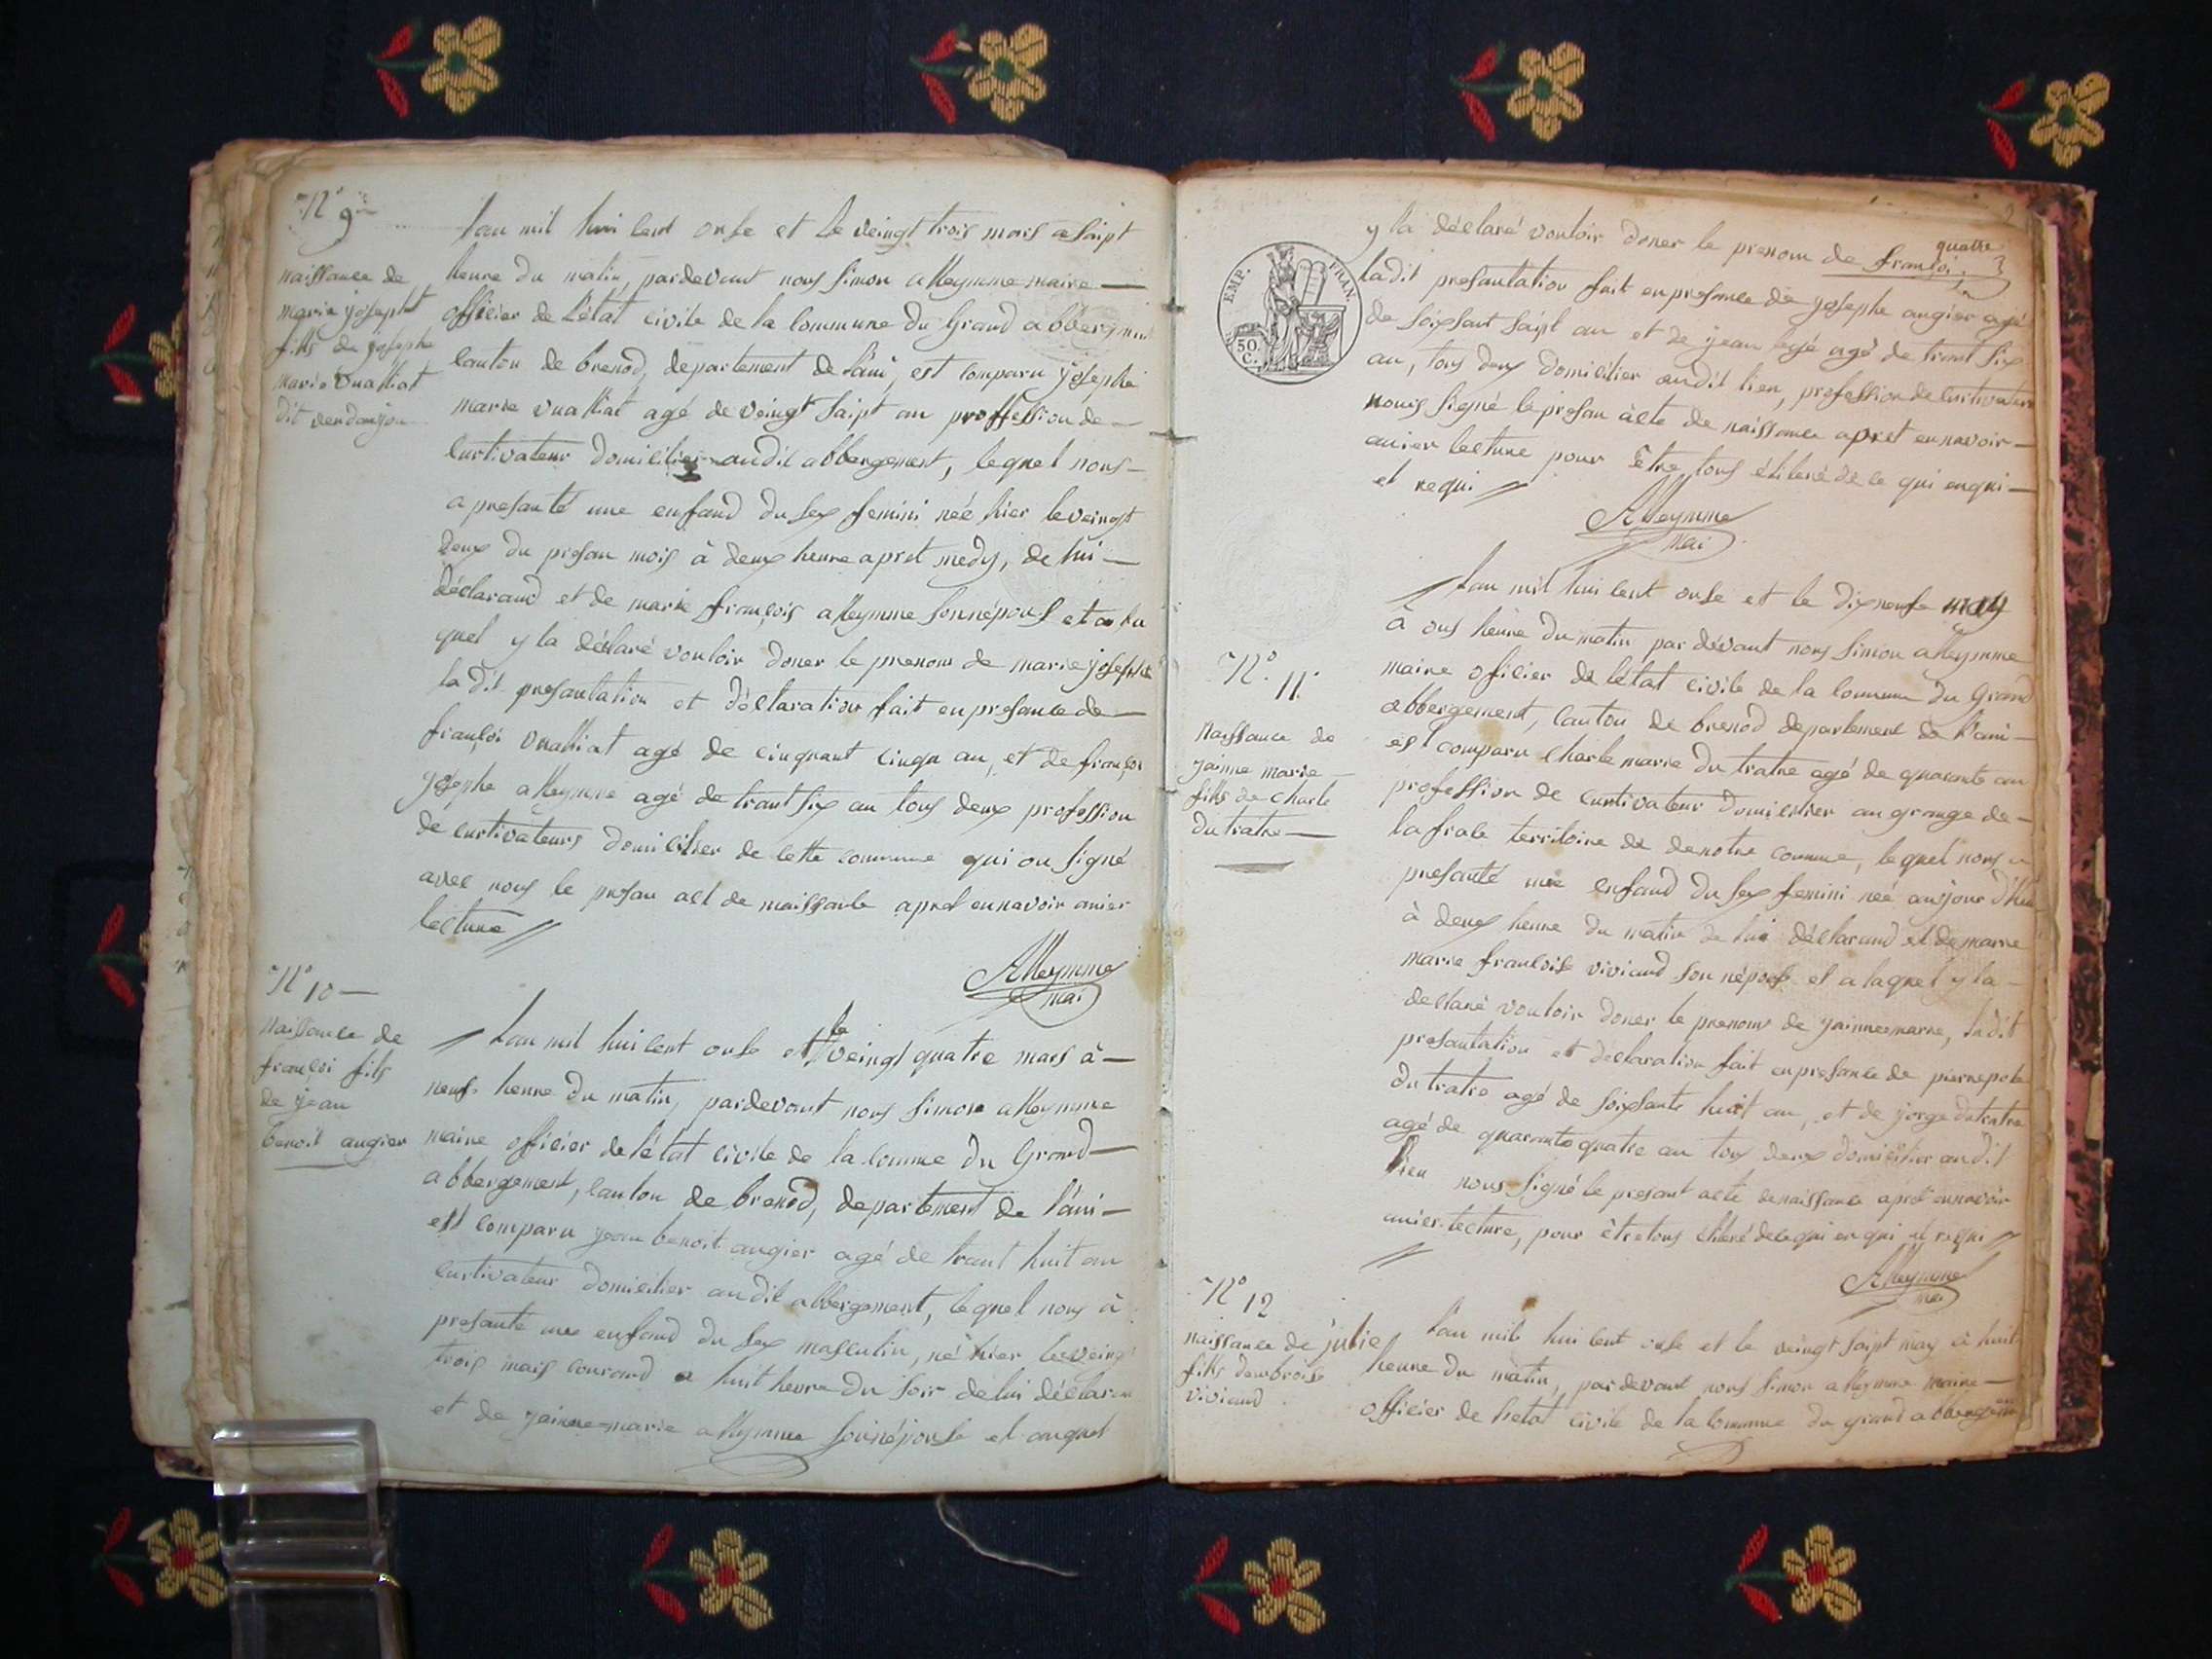 N° 9
naissance de
marie josepht
fills de josephe
marie vualliat
dit vendanjon
Lan mil hui cent onse et le veingt trois mars a saipt
heure du matin, pardevant nous simon alleymme maire
officier de l'état civile de la commune du Grand abbergement
canton de brenod, departement de l'ain, est comparu josephe
marie vualliat agé de veingt saipt an proffession de
curtivateur domicilier audit abbergement, lequel nous
a presanté une enfand du sex femini néé hier le veingt
deux du presan mois à deux heure apret medy, de lui
déclarand et de marie françois alleymme sonnépous et a lu
quel y la déclaré vouloir doner le prenom de marie josephte
ladit presantation et déclaration fait en presance de
françoi vualliat agé de cinquant cinqu an, et de françoi
josephe alleymme agé de trant six an tous deux profession
de curtivateurs domicilier de cette commune qui on signé
avec nous le presan act de naissance apret ennavoir anier
lecture
Alleymme
mai
N° 10
Naissance de
françoi fils
de jean
benoit augier
Lan mil hui cent onse et le veingt quatre mars à
neuf heure du matin, pardevant nous simon alleymme
maire officier de l'état civile de la comme du Grand
abbergement, canton de brenod, departement de l'ain
est comparu jean benoit augier agé de trant huit an
curtivateur domicilier audit abbergement, lequel nous à
presanté une enfand du sex masculin, né hier le veingt
trois mars courand a huit heure du soir de lui déclarand
et de jainne-marie alleymme sonnépouse et auquel
quatre
y la déclaré vouloir doner le prenom de françoi,
EMP. FRAN.
50 C.
ladit presantation fait en presance de josephe augier agé
de soixsant saipt an et de jean agé de trant six
an, tous deux domicilier audit lieu, profession de curtivateur
nous signé le presan àcte de naissance apret ennavoir
anier lecture pour être tous étiberé de ce qui enqui
et requi
Alleymme
mai
N°. 11.
Naissance de
jainne marie
fills de charle
dutratre
Lan mil hui cent onse et le dixneufe may
à ons heure du matin par dévant nous simon alleymme
maire oficier de létat civile de la commune du Grand
abbergement, canton de brenod departement de l'ain
est comparu charle marie dutratre agé de quarante an
profession de curtivateur domicilier au grange de
lafrale territoire de denotre comme, lequel nous a
presanté une enfand du sex femini néé aujour d'hui
à deux heure du matin de lui déclarand et de marie
marie francoise viviand son népous et a laquel y la
declaré vouloir doner le prenom de jainnemarie, ladit
presantation et déclaration fait en presance de
dutratre agé de soixsante huit an, et de jorge dutratre
agé de quarante quatre an tous deux domicilier audit
lieu nous signé le presant acte denaissance apret ennavoir
anier lecture, pour être tous étiberé de ce qui en qui et requi
Alleymme
mai
N° 12
naissance de julie
fills d'enbroise
viviand
Lan mil hui cent onse et le veingt saipt may à huit
heure du matin, pardevant nous simon alleymme maire
officier de l'etat civile de la commune du grand abbergement